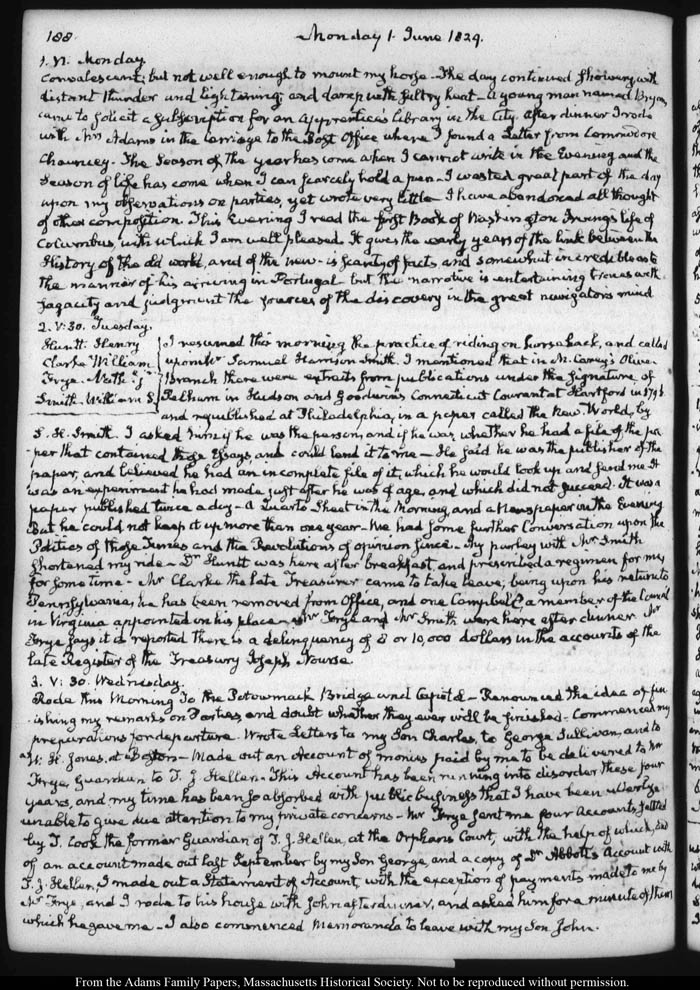 188.
Monday 1. June 1829.
1. VI. Monday.
Convalescent; but not well enough to mount my horse. The day continued showery with
distant thunder and lightening; and damp with sultry heat. A young man named Bryan
came to solicit a subscription for an Apprentices Library in the City. After dinner I rode
with Mrs Adams in the carriage to the Post Office where I found a Letter from Commodore
Chauncey. The Season of the year has come when I cannot write in the Evening and the
Season of life has come when I can scarcely hold a pen. I wasted great part of the day
upon my observations on parties, yet wrote very little. I have abandoned all thought
of other composition. This Evening I read the first Book of Washington Irving's life of
Columbus, with which I am well pleased. It gives the early years of the link between the
History of the old world, and of the new. is scanty of facts, and somewhat incredible as to
the manner of his arriving in Portugal. but the narrative is entertaining traces with
sagacity and judgment the sources of the discovery in the great navigators mind
2. V:30. Tuesday.
Huntt. Henry
Clarke William
Frye. Nath. J
Smith. William S.
I resumed this morning the practice of riding on horseback, and called
upon Mr Samuel Harrison Smith. I mentioned that in M. Carey's Olive
Branch there were extracts from publications under the signature of
Pelham in Hudson and Goodwin's Connecticut Courant at Hartford in 1796.
and republished at Philadelphia, in a paper called the New World, by
S. H. Smith. I asked him if he was the person, and if he was, whether he had a file of the pa-
per that contained these Essays, and could lend it to me. He said he was the publisher of the
paper, and believed he had an incomplete file of it, which he would look up and send me. It
was an experiment he had made just after he was of age, and which did not succeed. It was a
paper published twice a day. A Quarto Sheet in the Morning and a Newspaper in the Evening
But he could not keep it up more than one year. We had some further Conversation upon the
Politics of those Times and the Revolutions of opinion since. My parley with Mr Smith
shortened my ride. Dr Huntt was here after breakfast, and prescribed a regimen for me,
for some time. Mr Clarke the late Treasurer came to take leave; being upon his return to
Pennsylvania; he has been removed from Office, and one Campbell a member of the Council
in Virginia appointed in his place. Mr Frye and Mr Smith were here after dinner. Mr
Frye says it is reported there is a delinquency of 8 or 10,000 dollars in the accounts of the
late Register of the Treasury Joseph Nourse.
3. V: 30. Wednesday.
Rode this Morning to the Potowmack Bridge and Capitol. Renounced the idea of fin-
ishing my remarks on Parties, and doubt whether they ever will be finished. Commenced my
preparations for departure. Wrote Letters to my Son Charles, to George Sullivan, and to
W. H. Jones, at Boston. Made out an Account of monies paid by me to be delivered to Mr
Frye, Guardian to T. J. Hellen. This Account has been running into disorder these four
years, and my time has been so absorbed with public business that I have been utterly
unable to give due attention to my private concerns. Mr Frye sent me four Accounts settled
by T. Cook the former Guardian of T. J. Hellen, at the Orphans Court, with the help of which, and
of an account made out last September by my Son George, and a copy of Dr Abbott's Account with
T. J. Hellen, I made out a Statement of Account, with the exception of payments made to me by
Mr Frye, and I rode to his house with John after dinner, and asked him for a minute of them
which he gave me. I also commenced Memoranda to leave with my Son John.
From the Adams Family Papers, Massachusetts Historical Society. Not to be reproduced without permission.